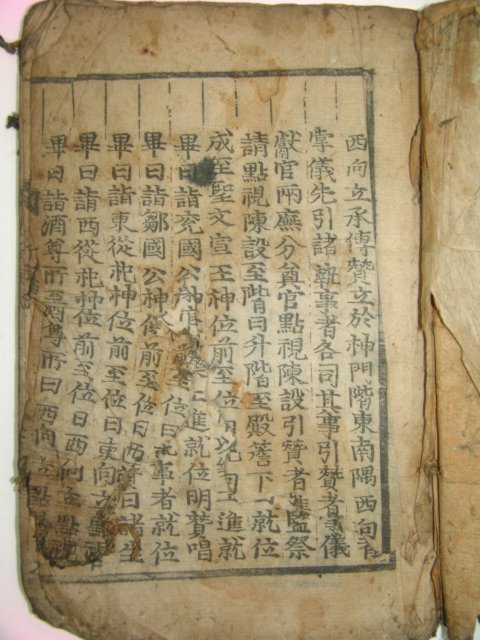 西向立承傳贊立於神門階東南隅西向
掌儀先引諸執事者各司其事引贊者
獻官兩廡分奠官點視陳設引贊者 監祭
請點視陳設至階曰升階至殿簷下 就位
成至聖文宣王神位前至位 進就
畢曰詣兗國公神位 進就位明贊唱
畢曰詣鄒國公神位前至位曰 者就位
畢曰詣東從祀神位前至位曰東向立點
畢曰詣西從祀神位前至位曰西向立點
畢曰詣酒尊所至尊所曰西向立點